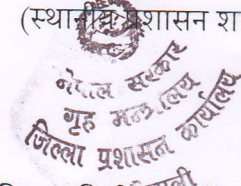 (स्थानीय प्रशासन श
नेपाल सरकार
गृह मन्त्रालय
जिल्ला प्रशासन कार्यालय